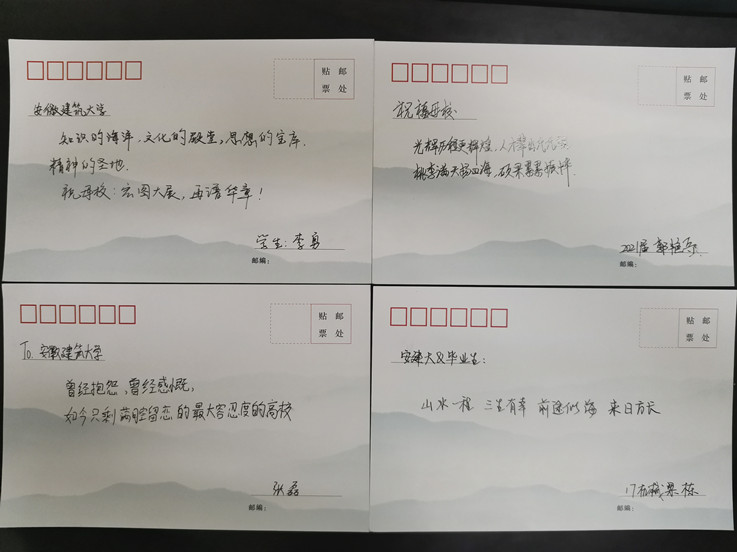 贴 邮
票 处
安徽建筑大学
知识的海洋,文化的殿堂,思想的宝库,
精神的圣地.
祝母校:宏图大展,再谱华章!
学生:李勇
邮编:
贴 邮
票 处
祝福母校
光辉历程更辉煌,人才辈出
桃李满天扬四海,硕果累累
2021届
邮编:
贴 邮
票 处
To. 安徽建筑大学
曾经抱怨,曾经感慨,
如今只剩满腔留恋的最大容忍度的高校
张磊
邮编:
贴 邮
票 处
安建大&毕业生:
山水一程 三生有幸 前途似海 来日方长
17机械 栋
邮编: